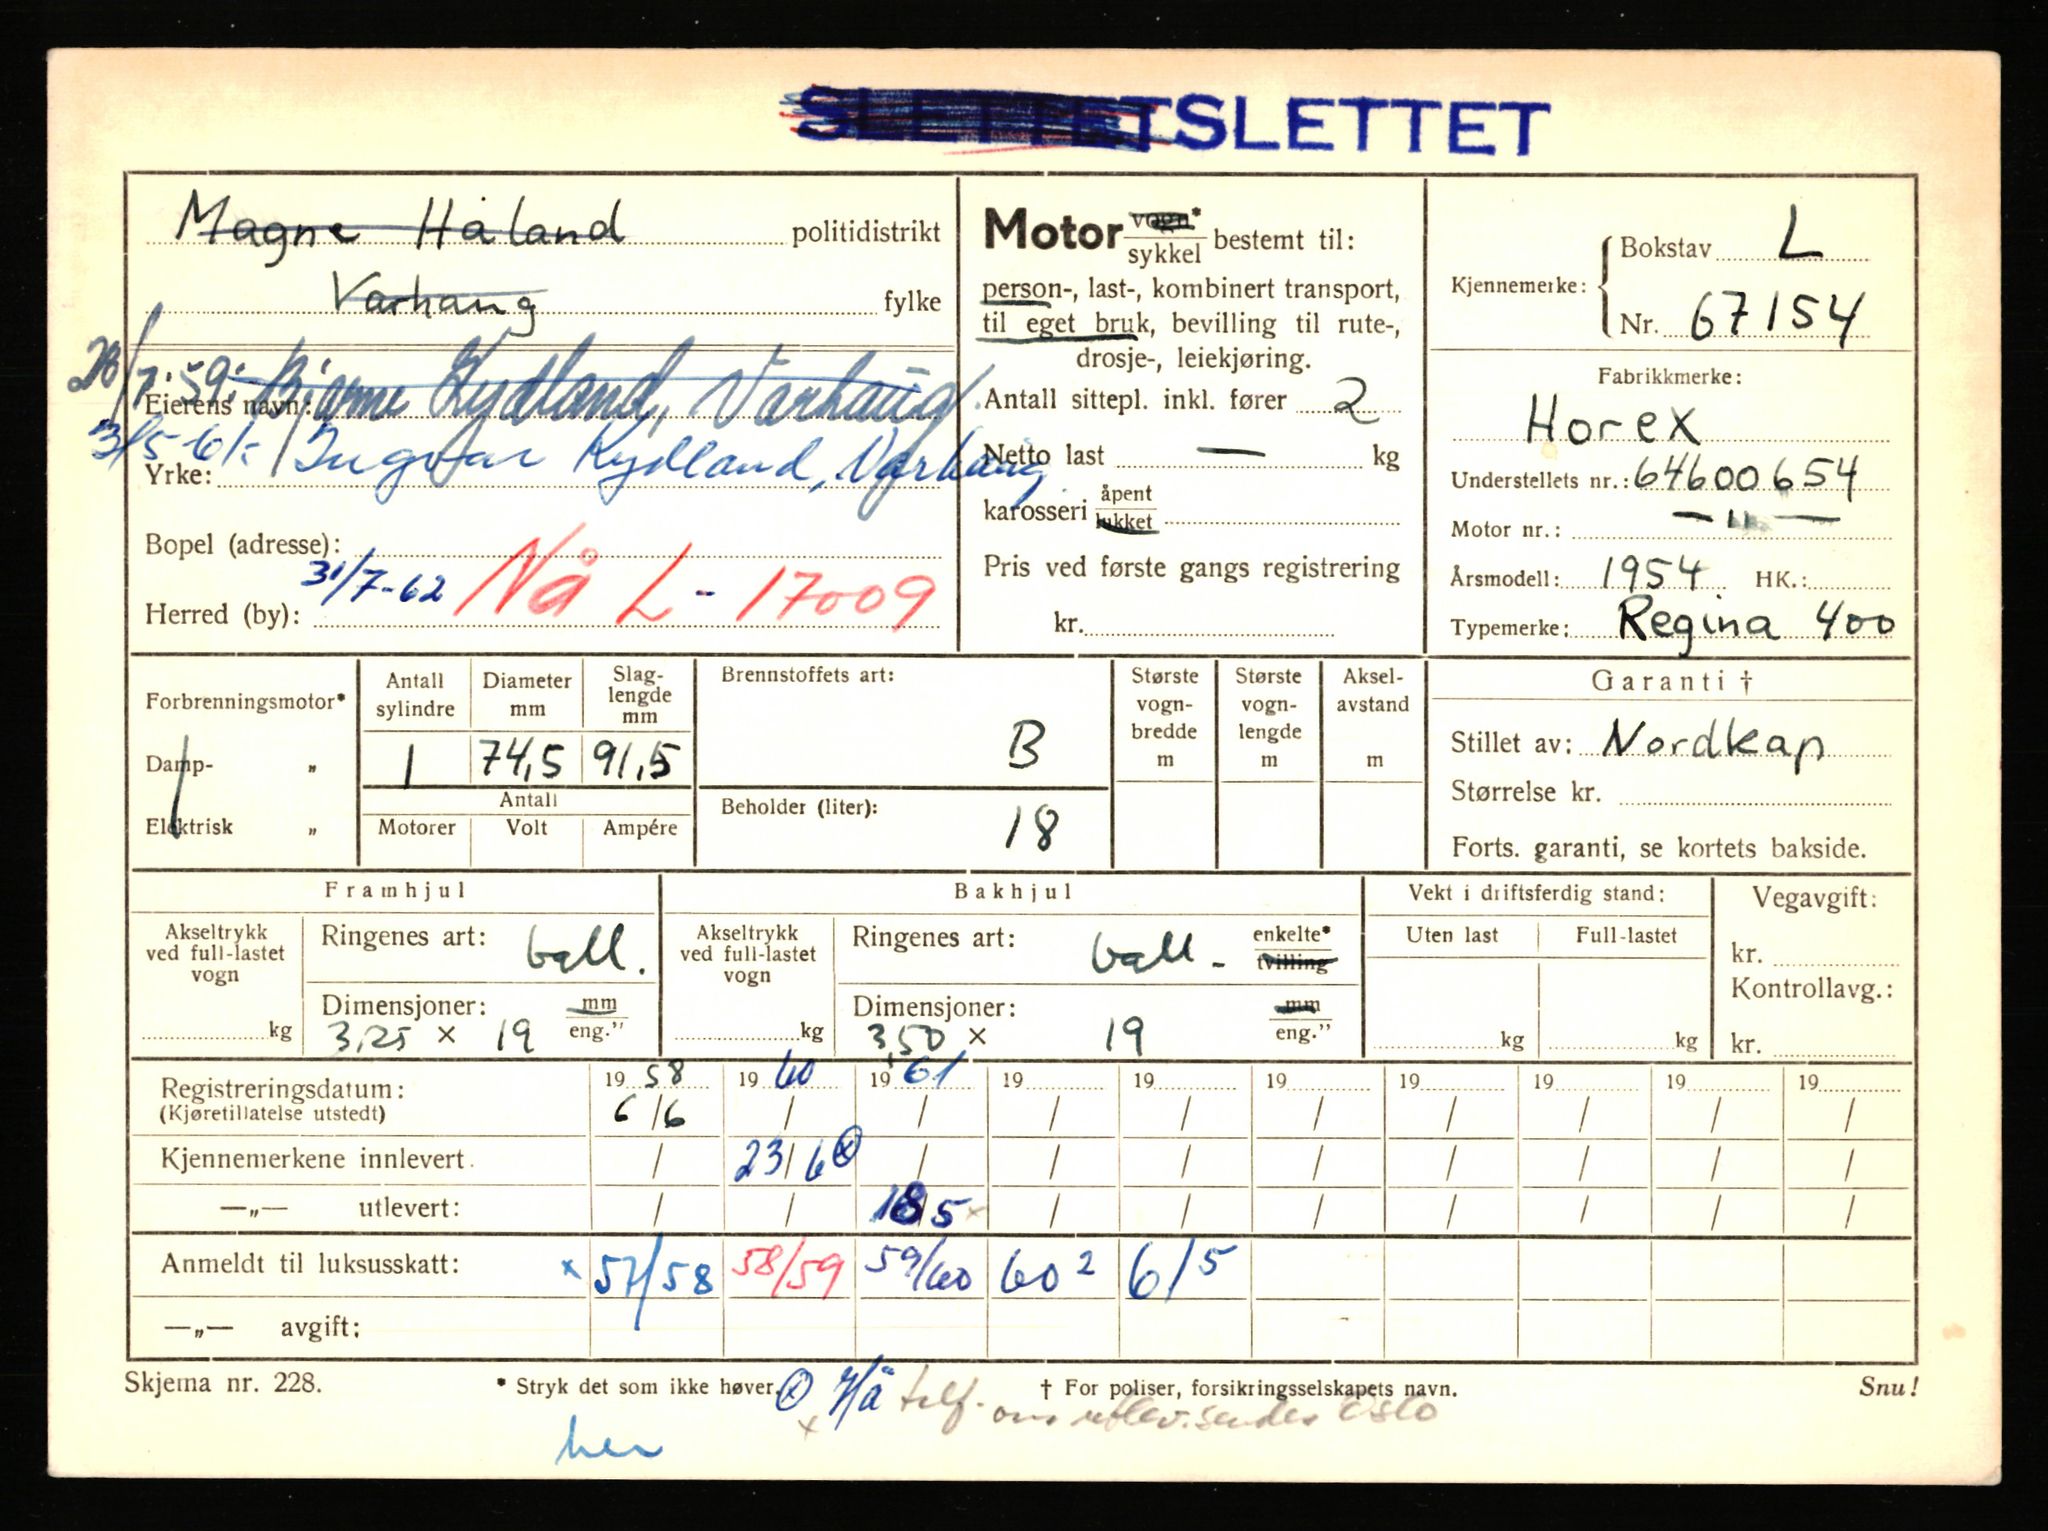 SLETTET SLETTET
Magne Håland politidistrikt
Varhaug fylke
28/7.59: Bjarne Kydland, Varhaug.
Eierens navn:
3/5-61: Ingvar Kydland, Varhaug
Yrke:
Bopel (adresse):
31/7-62 Nå L - 17009
Herred (by):
Motor vogn*
sykkel bestemt til:
person-, last-, kombinert transport,
til eget bruk, bevilling til rute-,
drosje-, leiekjøring.
Antall sittepl. inkl. fører 2
Netto last — kg
karosseri åpent
lukket
Pris ved første gangs registrering
kr.
Kjennemerke: Bokstav L
Nr. 67154
Fabrikkmerke:
Horex
Understellets nr.: 64600654
Motor nr.: — " —
Årsmodell: 1954 HK.:
Typemerke: Regina 400
Forbrenningsmotor*
Damp- „
Elektrisk „
Antall sylindre Diameter mm Slag-lengde mm
1 74,5 91,5
Antall
Motorer Volt Ampére
Brennstoffets art:
B
Beholder (liter):
18
Største vogn-bredde m
Største vogn-lengde m
Aksel-avstand m
Garanti †
Stillet av: Nordkap
Størrelse kr.
Forts. garanti, se kortets bakside.
Framhjul
Akseltrykk ved full-lastet vogn
kg
Ringenes art: ball.
Dimensjoner: mm
3,25 x 19 eng."
Bakhjul
Akseltrykk ved full-lastet vogn
kg
Ringenes art: ball - enkelte*
tvilling
Dimensjoner: mm
3,50 x 19 eng."
Vekt i driftsferdig stand:
Uten last Full-lastet
kg kg
Vegavgift:
kr.
Kontrollavg.:
kr.
Registreringsdatum: 19 58 19 60 19 61 19 19 19 19 19 19 19
(Kjøretillatelse utstedt) 6/6 / / / / / / / / /
Kjennemerkene innlevert. / 23/6 ⓧ / / / / / / / /
—„— utlevert: / / 18/5 x / / / / / / /
Anmeldt til luksusskatt: x 57/58 58/59 59/60 60 2 6/5
—„— avgift:
Skjema nr. 228. * Stryk det som ikke høver. † For poliser, forsikringsselskapets navn. Snu!
ⓧ Hå
x telf. om utlev. sendes Oslo
her